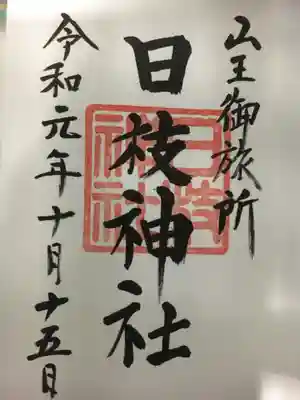 山王御旅所
日枝神社
日枝神社
令和元年十月十五日